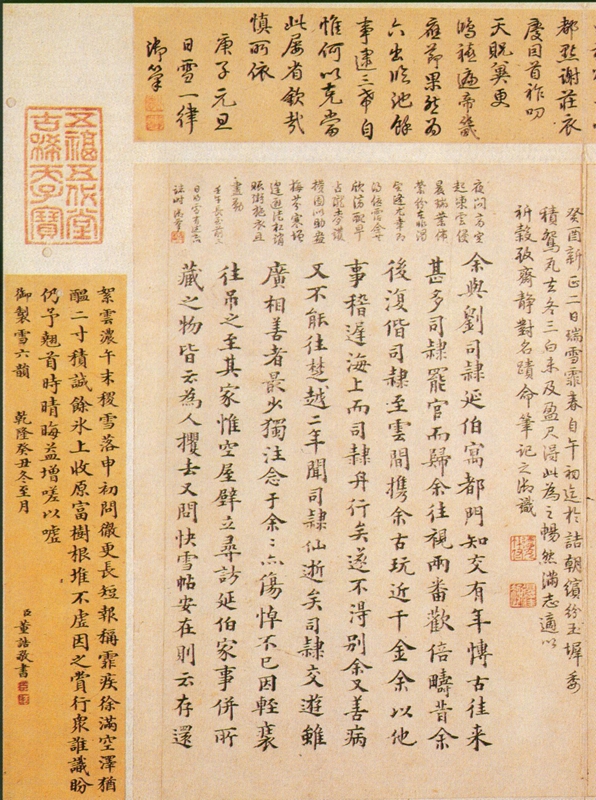 都點謝莊衣
慶因首祚叨
天貺冀更
鴻禧遍帝畿
應節果然為
六出臨池餘
事逮三希自
惟何以克當
此屢省欽哉
慎所依
庚子元旦
日雪一律
御筆
癸酉新正二日瑞雪霏春自午初迄於詰朝繽紛玉墀委
積鴛瓦去冬三白未及盈尺得此為之暢然滿志適以
祈穀致齋静對名蹟命筆記之御識
夜間高空
起凍雲侵
晨瑞葉佈
欣洽耿早
梅芬寒
畫勒
余與劉司隸延伯寓都門知交有年博古往来
甚多司隸罷官而歸余往視兩番歡倍疇昔余
後復偕司隸至雲間携余古玩近千金余以他
事稽遲海上而司隸舟行矣遂不得别余又善病
又不能往楚越二年聞司隸仙逝矣司隸交遊雖
廣相善者最少獨注念于余〻亦傷悼不已因輕裘
往吊之至其家惟空屋壁立尋訪延伯家事併所
藏之物皆云為人攫去又問快雪帖安在則云存還
五福五代堂
古稀天子寶
絮雲濃午末稷雪落申初問徹更長短報稱霏疾徐滿空澤猶
醞二寸積誠餘氷上收原富樹根堆不虛因之賞行衆誰議盼
仍予翹首時晴晦益增嗟以噓
御製雪六韻 乾隆癸丑冬至月
臣董誥敬書